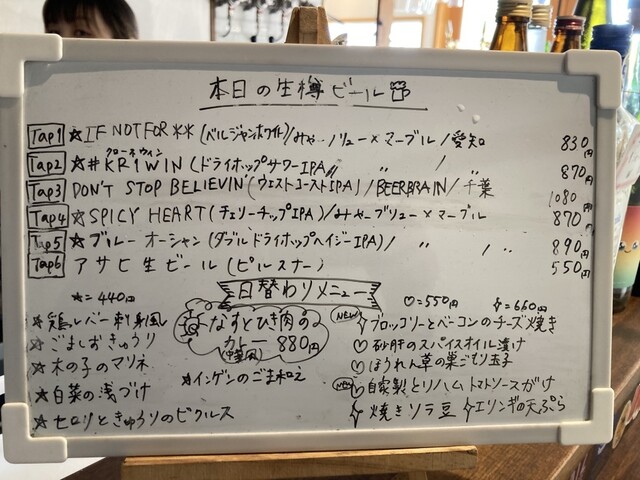 本日の生樽ビール
Tap1 ☆IF NOT FOR ** (ベルジャンホワイト)/みやーブリュー×マーブル/愛知 830円
Tap2 ☆#KR1WIN クローネウィン (ドライホップサワーIPA) 〃 / 〃 870円
Tap3 DON'T STOP BELIEVIN' (ウェストコーストIPA)/BEERBRAIN/千葉 1080円
Tap4 ☆SPICY HEART (チェリーチップIPA)/みやーブリュー×マーブル 870円
Tap5 ☆ブルーオーシャン (ダブルドライホップヘイジーIPA)/ 〃 / 〃 890円
Tap6 アサヒ生ビール (ピルスナー) 550円
日替わりメニュー
☆=440円 ♡=550円 ✧=660円
☆鶏レバー刺身風
☆ごよしおきゅうり
☆木の子のマリネ
☆白菜の浅づけ
☆セロリときゅうりのピクルス
なすとひき肉の
カレー 880円
(中辛風)
☆インゲンのごま和え
NEW ✧ブロッコリーとベーコンのチーズ焼き
♡砂肝のスパイスオイル漬け
♡ほうれん草の巣ごもり玉子
NEW ♡自家製とりハムトマトソースがけ
✧焼きソラ豆 ✧エリンギの天ぷら